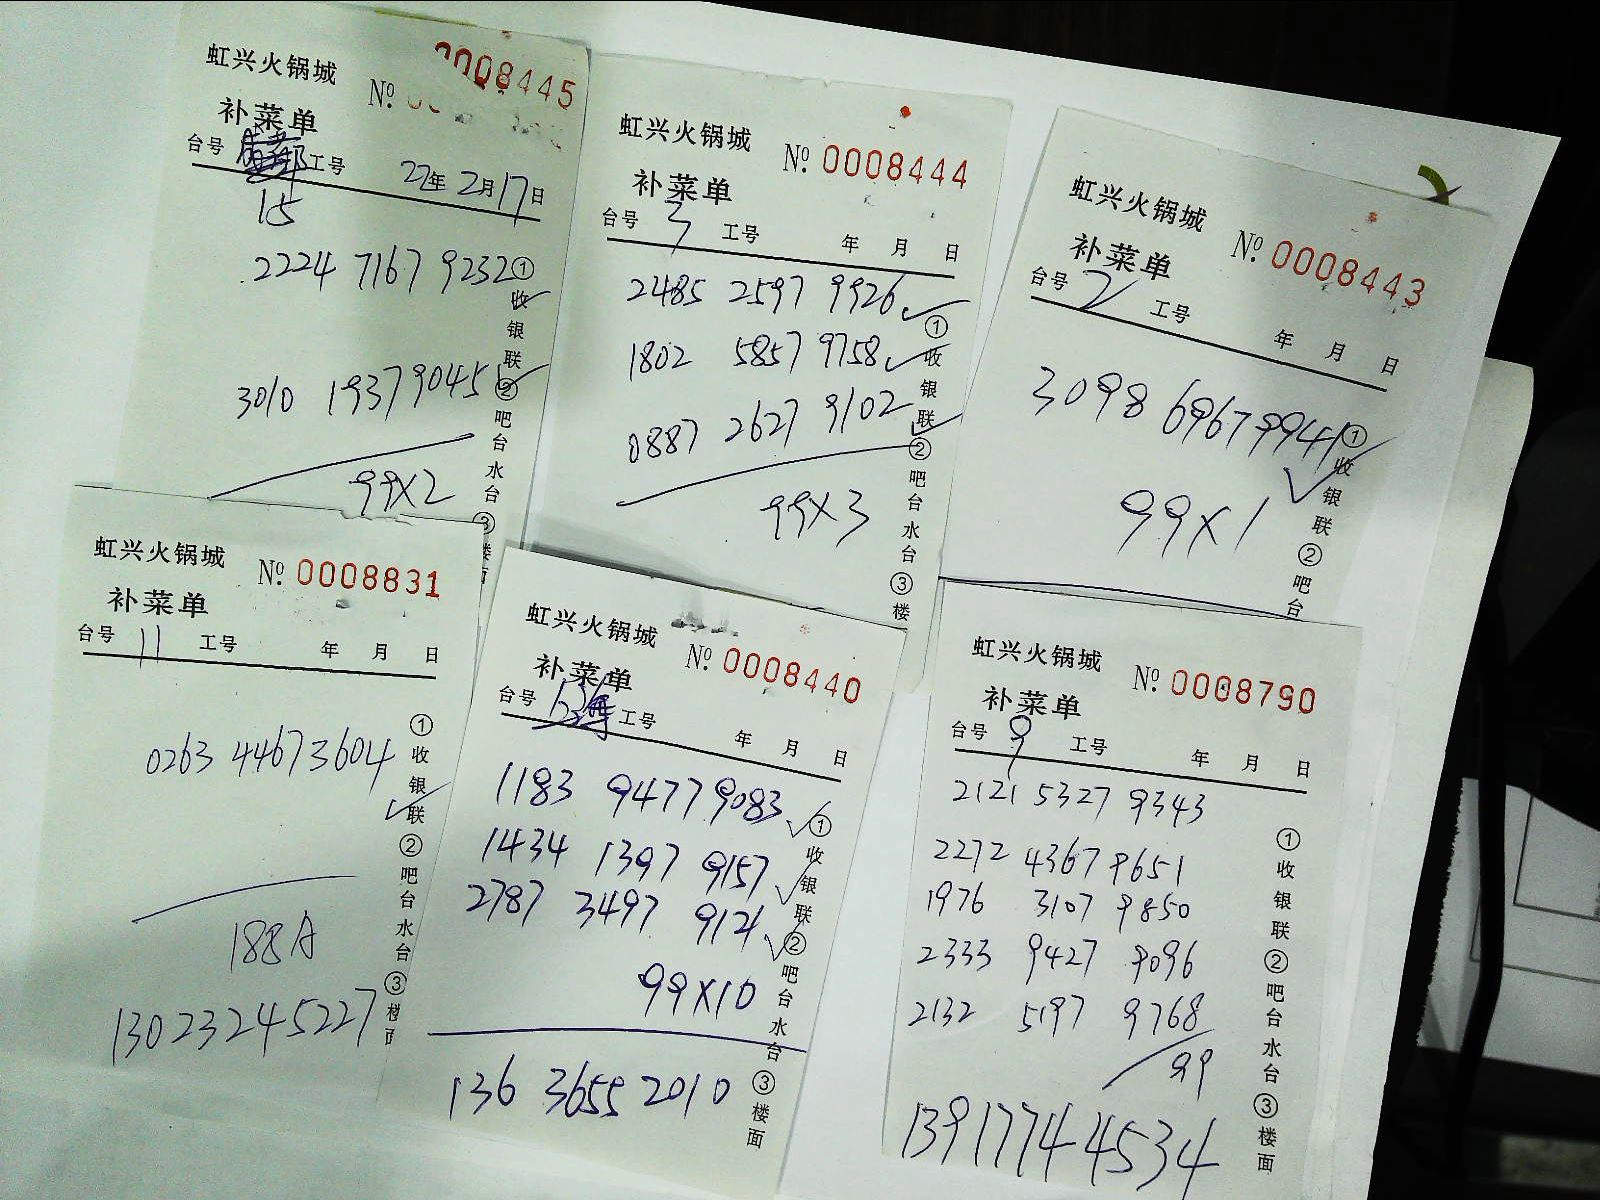 虹兴火锅城
No. 0008445
补菜单
台号 工号 22年2月17日
15
2224 7167 9232
3010 1937 9045
99×2
①收银联②吧台水台③楼面
虹兴火锅城
No. 0008444
补菜单
台号 3 工号 年 月 日
2485 2597 9926
1802 5857 9758
0887 2627 9102
99×3
①收银联②吧台水台③楼
虹兴火锅城
No. 0008443
补菜单
台号 2 工号 年 月 日
3098 6967 9941
99×1
①收银联②吧台
虹兴火锅城
No. 0008831
补菜单
台号 11 工号 年 月 日
0263 4467 3604
188A
13023245227
①收银联②吧台水台③楼面
虹兴火锅城
No. 0008440
补菜单
台号 工号 年 月 日
1183 9477 9083
1434 1397 9157
2787 3497 9121
99×10
136 3655 2010
①收银联②吧台水台③楼面
虹兴火锅城
No. 0008790
补菜单
台号 9 工号 年 月 日
2121 5327 9343
2272 4367 9651
1976 3107 9850
2333 9427 9096
2132 5197 9768
99
13917744534
①收银联②吧台水台③楼面